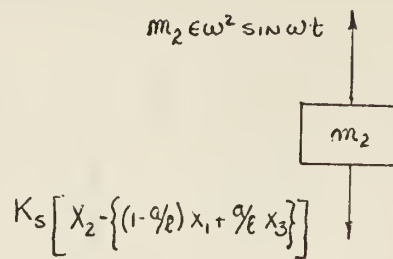 m₂ εω² SIN ωt
m₂
K_S [ X₂ - {(1 - a/ℓ) X₁ + a/ℓ X₃} ]